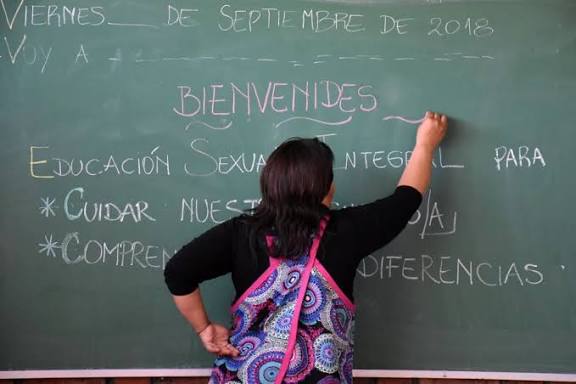 VIERNES___ DE SEPTIEMBRE DE 2018
VOY A
BIENVENIDES
EDUCACIÓN INTEGRAL PARA
* CUIDAR
* DIFERENCIAS.